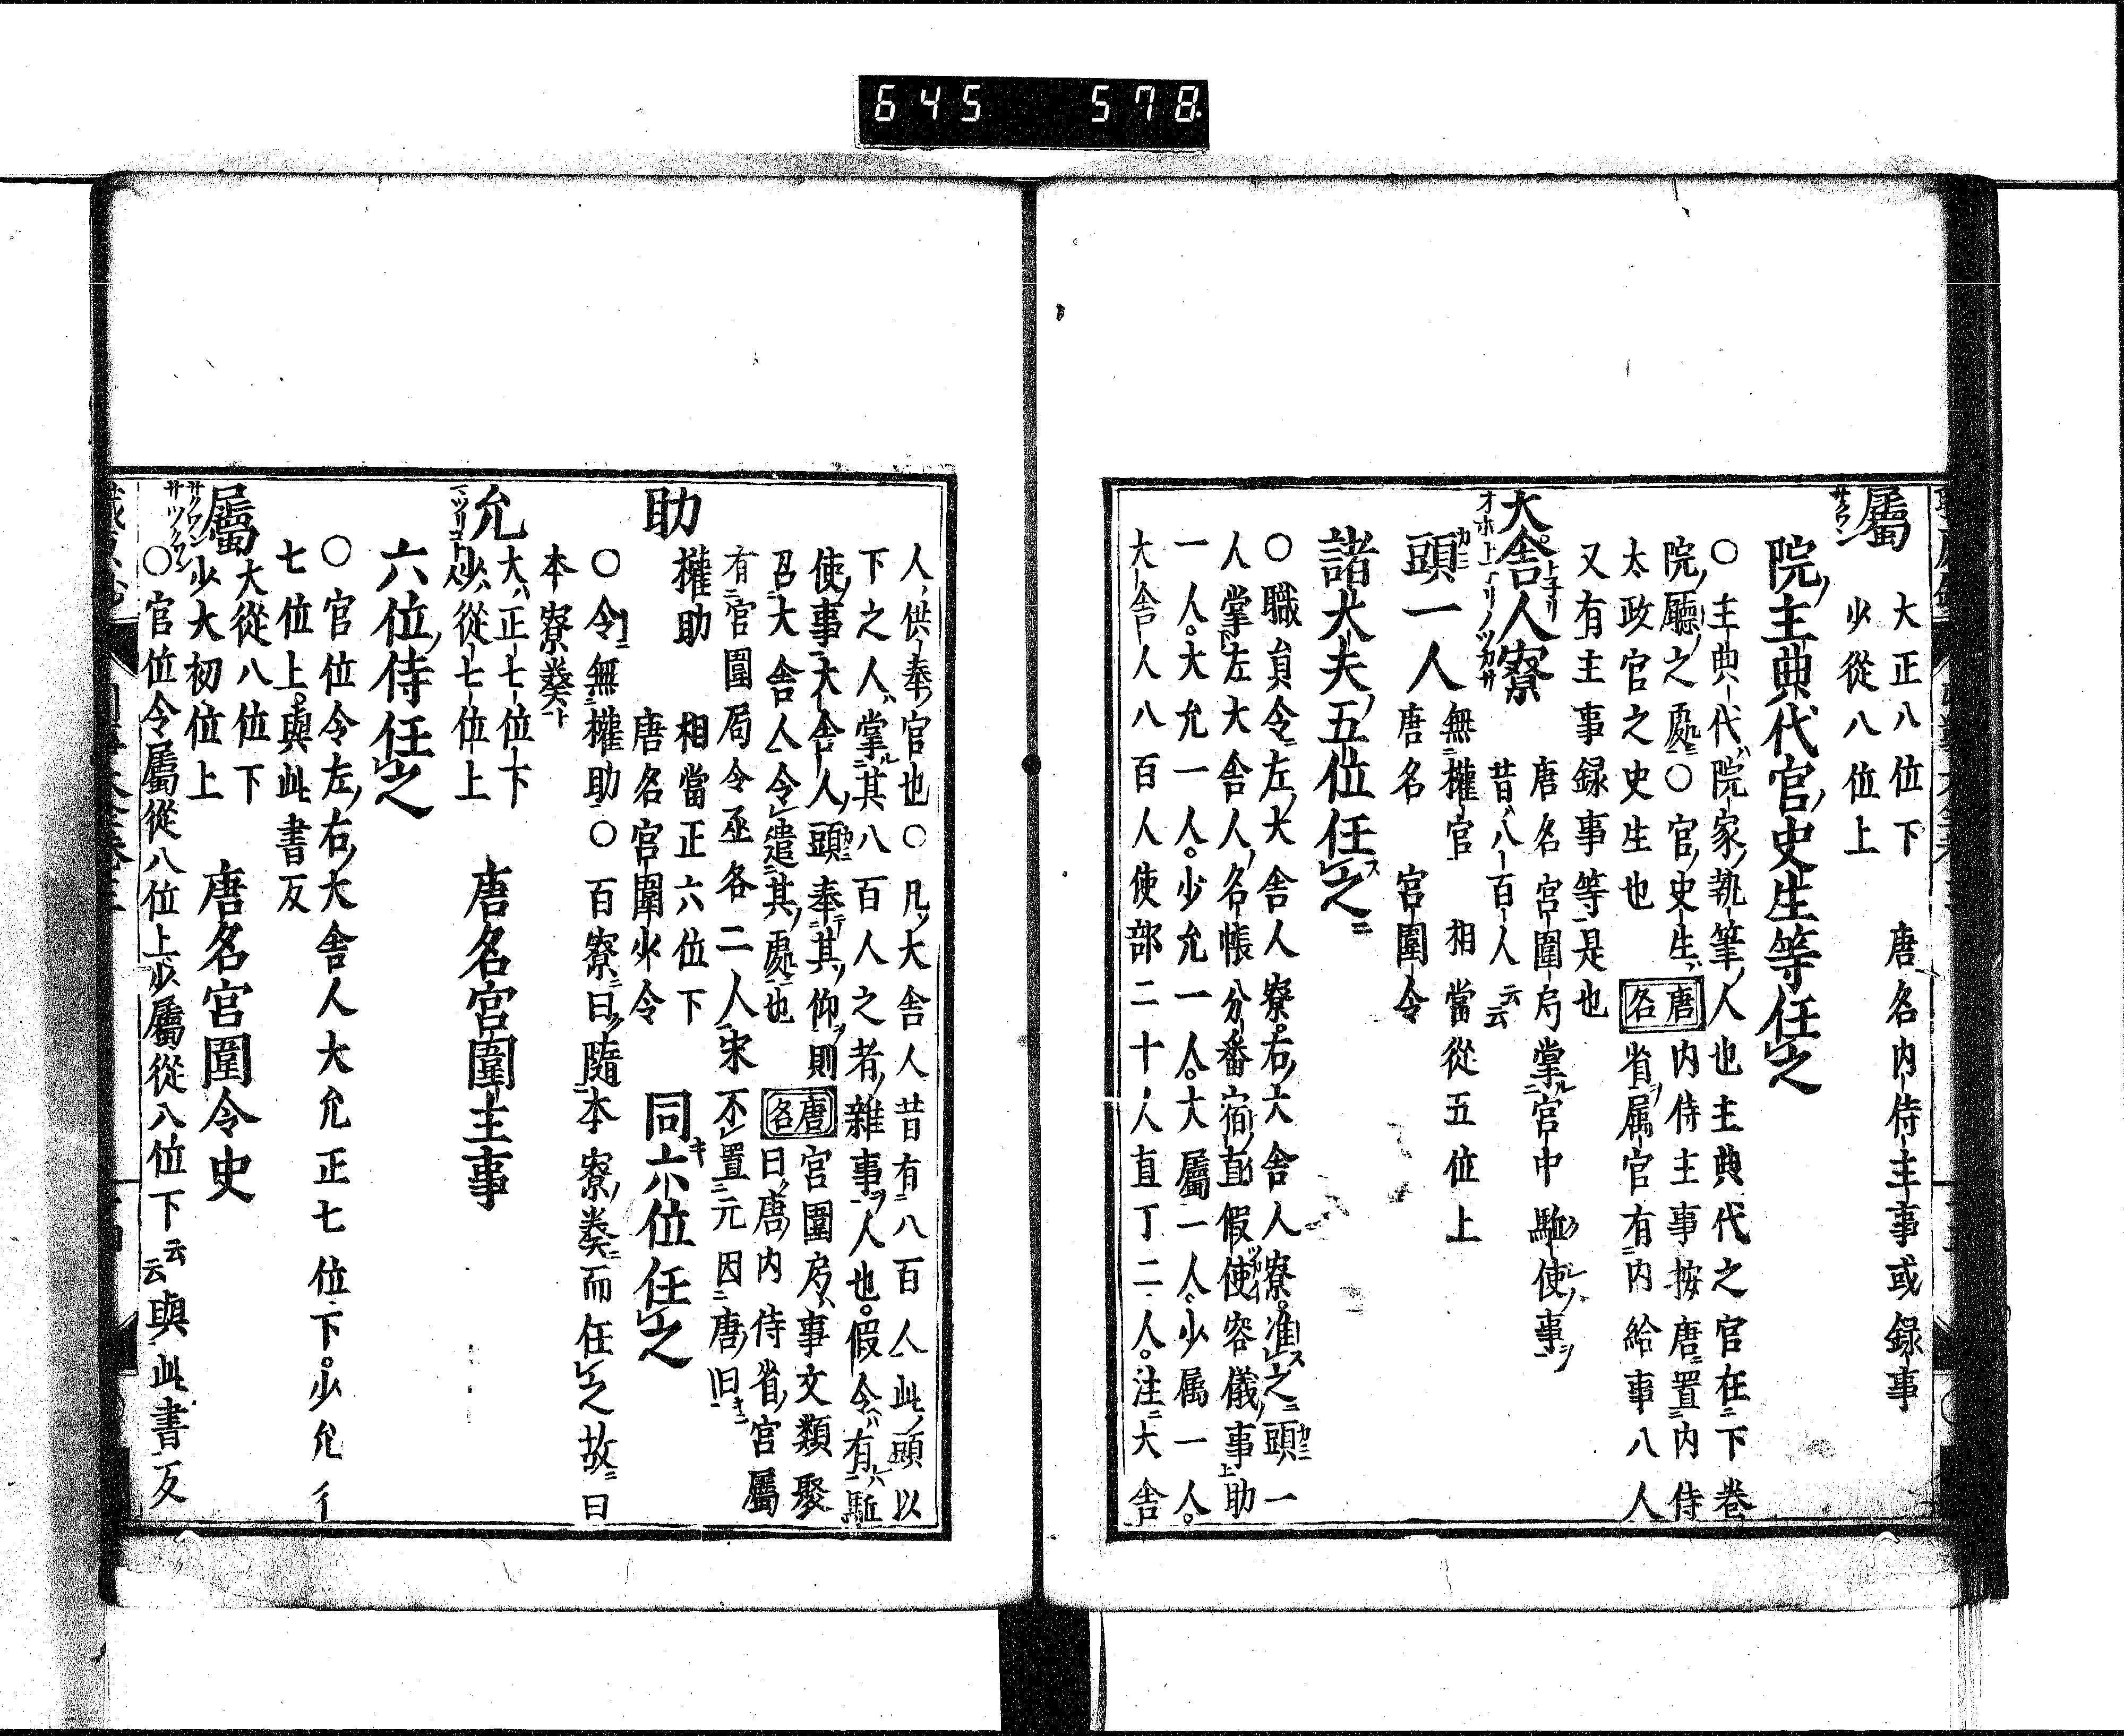 645 578
屬 大正八位下 唐名内侍主事或録事
サクワン 少從八位上
院主典代官史生等任之
○主典代院家執筆人也主典代之官在下巻
院廳之處○官史生唐名内侍主事按唐置内侍
太政官之史生也 省属官有内給事八人
又有主事録事等是也
大舎人寮 唐名宮圍局掌宮中駈使事
オホトネリノツカサ 昔八百人云云
頭一人 無權官 相當從五位上
唐名 宮圍令
諸大夫五位任之
○職員令左大舎人寮右大舎人寮准之頭一
人掌左大舎人名帳分番宿直假使容儀事助
一人大允一人少允一人大屬一人少属一人
大舎人八百人使部二十人直丁二人注大舎
人供奉官也○凡大舎人昔有八百人此頭以
下之人掌其八百人之者雜事人也假令有駈
使事大舎人頭奉其仰則唐名宮圍局事文類聚
召大舎人令遣其處也 曰唐内侍省官屬
有宮圍局令丞各二人宋不置元因唐旧
助 權助 相當正六位下 同六位任之
唐名宮圍少令
○令無權助○百寮曰隨本寮奏而任之故曰
本寮奏
允 大正七位下 唐名宮圍主事
少從七位上
六位侍任之
○官位令左右大舎人大允正七位下少允從
七位上與此書反
屬 大從八位下 唐名宮圍令史
サクワン サツクワン 少大初位上
○官位令屬從八位上少屬從八位下云云與此書反